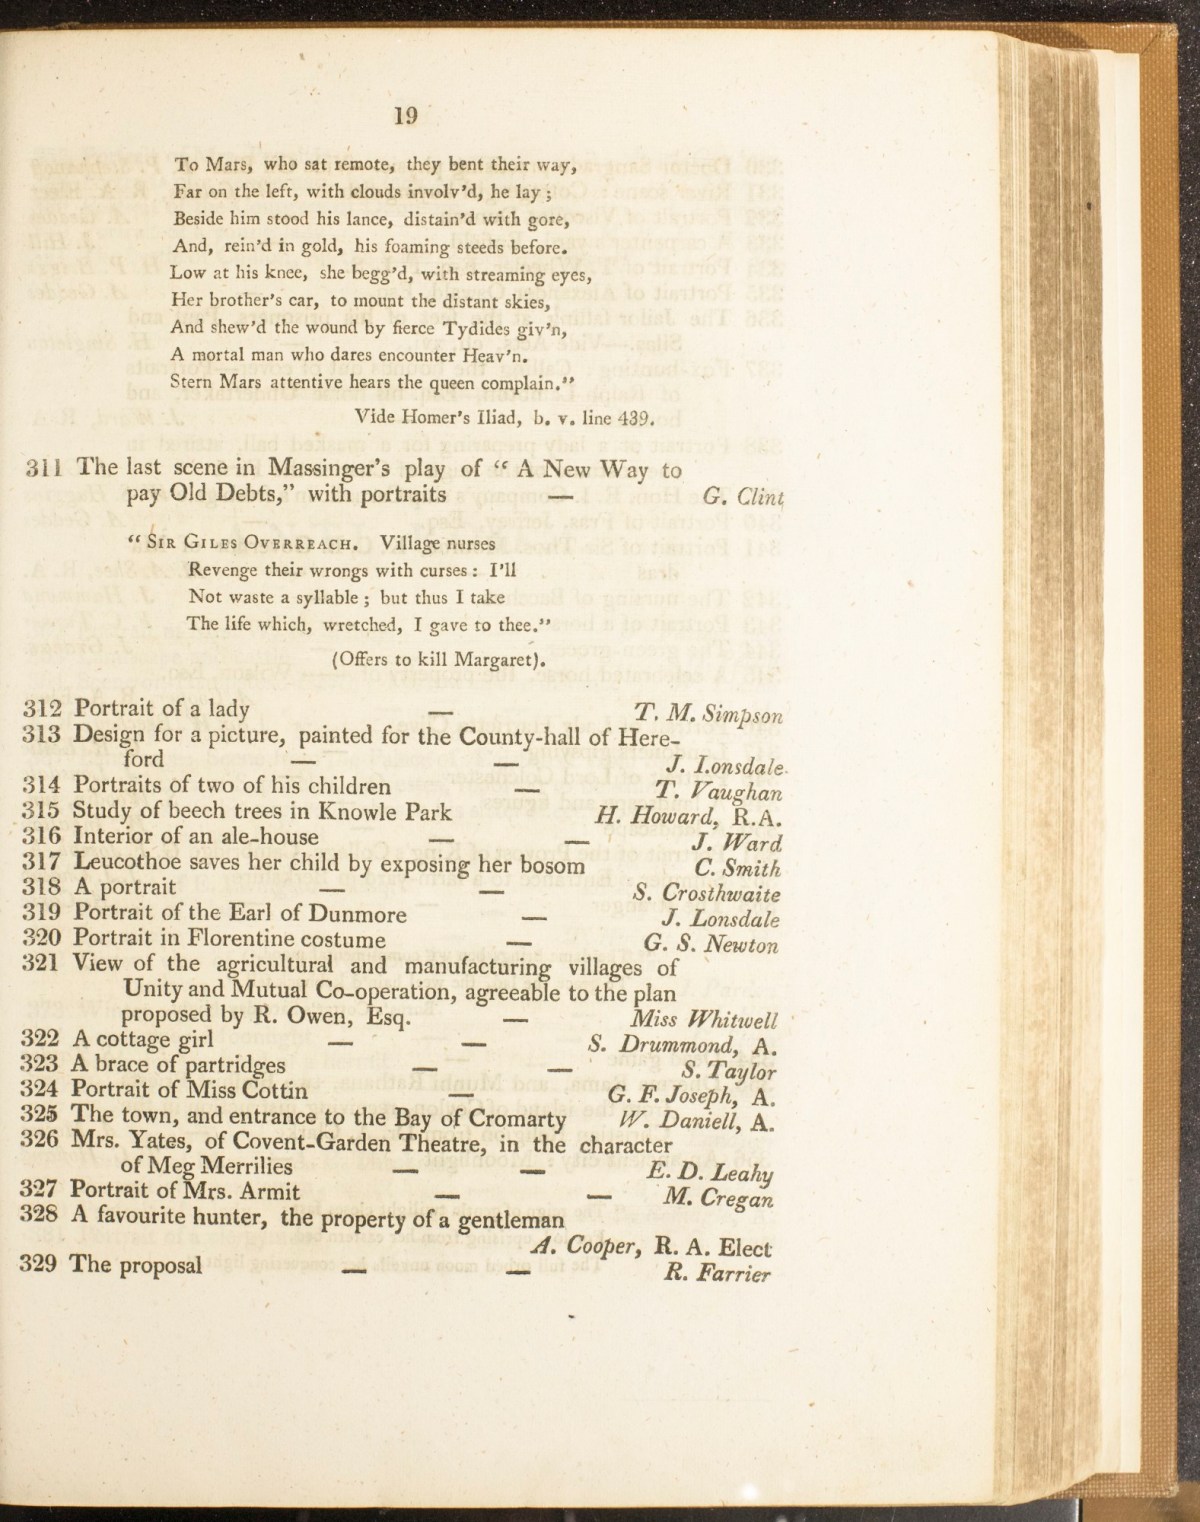 19
To Mars, who sat remote, they bent their way,
Far on the left, with clouds involv'd, he lay ;
Beside him stood his lance, distain'd with gore,
And, rein'd in gold, his foaming steeds before.
Low at his knee, she begg'd, with streaming eyes,
Her brother's car, to mount the distant skies,
And shew'd the wound by fierce Tydides giv'n,
A mortal man who dares encounter Heav'n.
Stern Mars attentive hears the queen complain."
Vide Homer's Iliad, b. v. line 439.
311 The last scene in Massinger's play of “ A New Way to
pay Old Debts,” with portraits — G. Clint
“ SIR GILES OVERREACH. Village nurses
Revenge their wrongs with curses : I'll
Not waste a syllable ; but thus I take
The life which, wretched, I gave to thee.”
(Offers to kill Margaret).
312 Portrait of a lady — T. M. Simpson
313 Design for a picture, painted for the County-hall of Here-
ford — — J. Lonsdale
314 Portraits of two of his children — T. Vaughan
315 Study of beech trees in Knowle Park H. Howard, R.A.
316 Interior of an ale-house — — J. Ward
317 Leucothoe saves her child by exposing her bosom C. Smith
318 A portrait — — S. Crosthwaite
319 Portrait of the Earl of Dunmore — J. Lonsdale
320 Portrait in Florentine costume — G. S. Newton
321 View of the agricultural and manufacturing villages of
Unity and Mutual Co-operation, agreeable to the plan
proposed by R. Owen, Esq. — Miss Whitwell
322 A cottage girl — — S. Drummond, A.
323 A brace of partridges — — S. Taylor
324 Portrait of Miss Cottin — G. F. Joseph, A.
325 The town, and entrance to the Bay of Cromarty W. Daniell, A.
326 Mrs. Yates, of Covent-Garden Theatre, in the character
of Meg Merrilies — — E. D. Leahy
327 Portrait of Mrs. Armit — — M. Cregan
328 A favourite hunter, the property of a gentleman
A. Cooper, R. A. Elect
329 The proposal — — R. Farrier